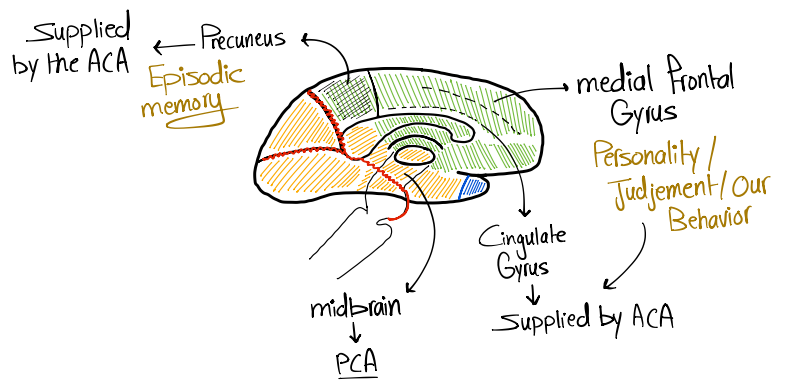 Supplied
by the ACA
Precuneus
Episodic
memory
medial frontal
Gyrus
Personality /
Judjement/ Our
Behavior
Cingulate
Gyrus
Supplied by ACA
midbrain
PCA